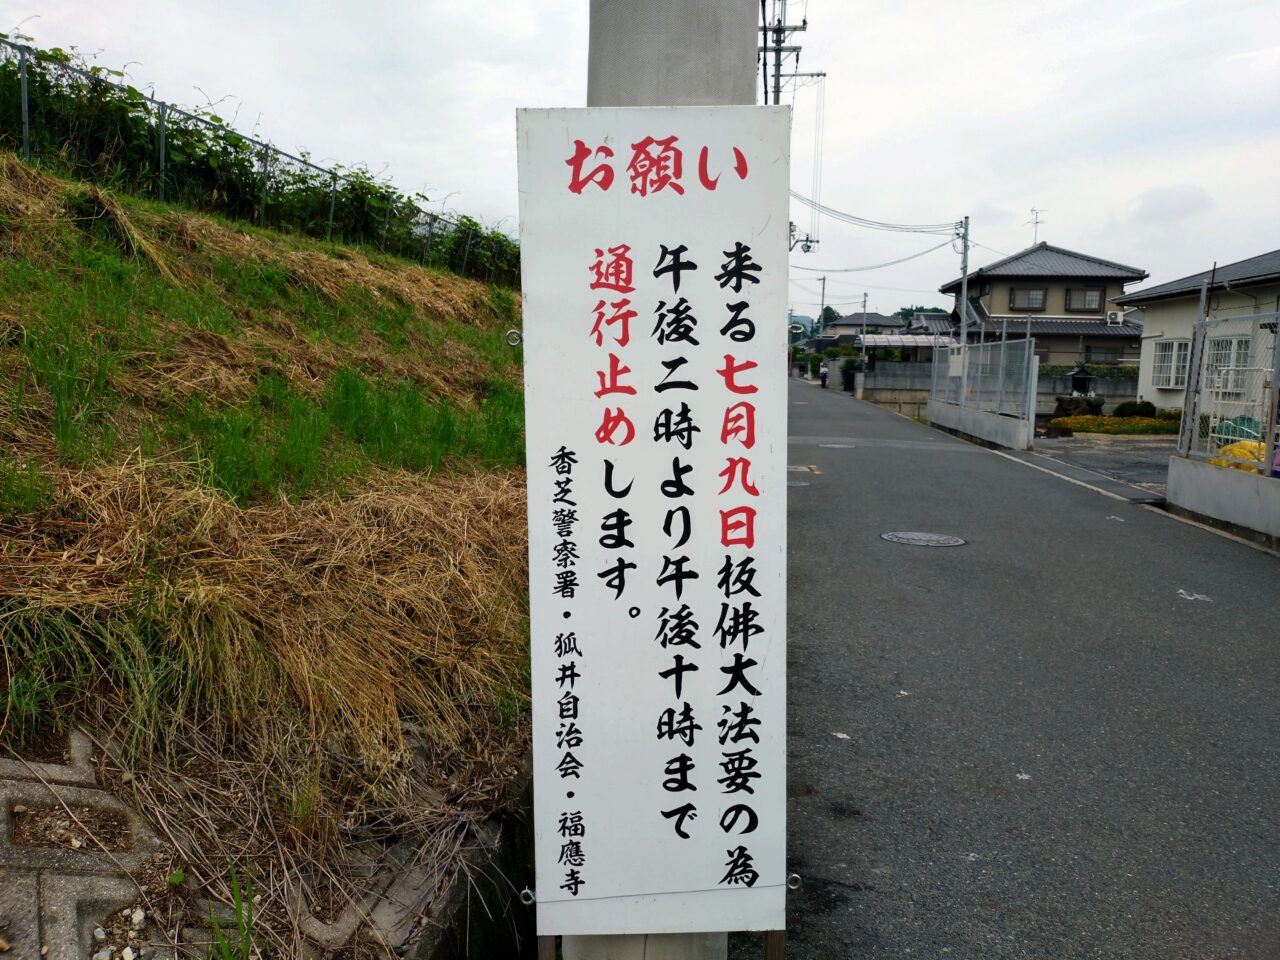 お願い
来る七月九日板佛大法要の為
午後二時より午後十時まで
通行止めします。
香芝警察署・狐井自治会・福應寺